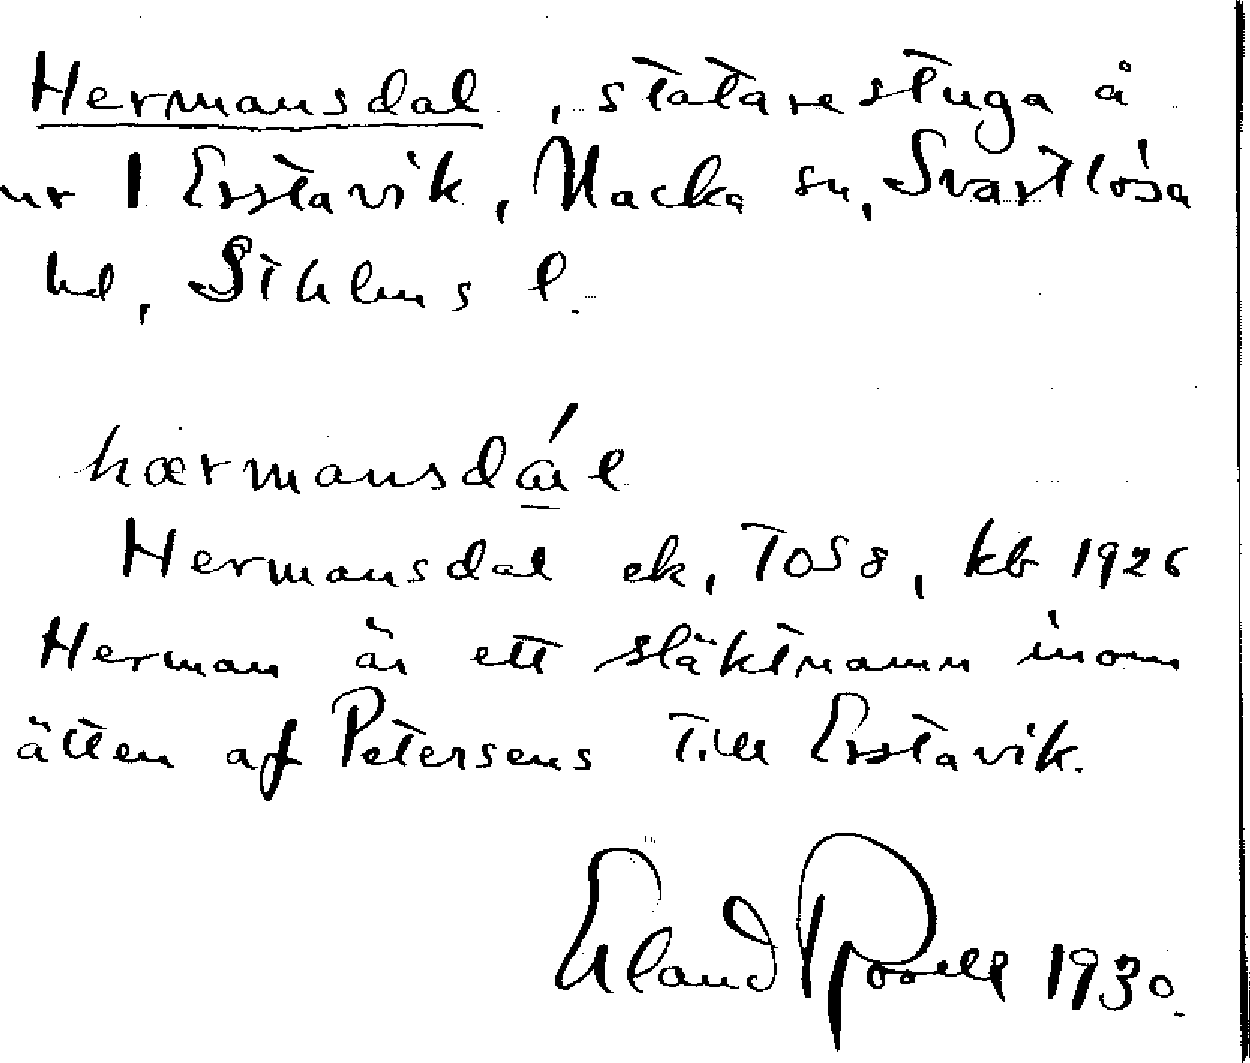 Hermansdal, statarestuga å
nr 1 Erstavik, Nacka sn, Svartlösa
hd, Sthlms l.
hærmansdál
Hermansdal ek, TOS8, kb 1926
Herman är ett släktnamn inom
ätten af Petersens till Erstavik.
Erland Rosell 1930.